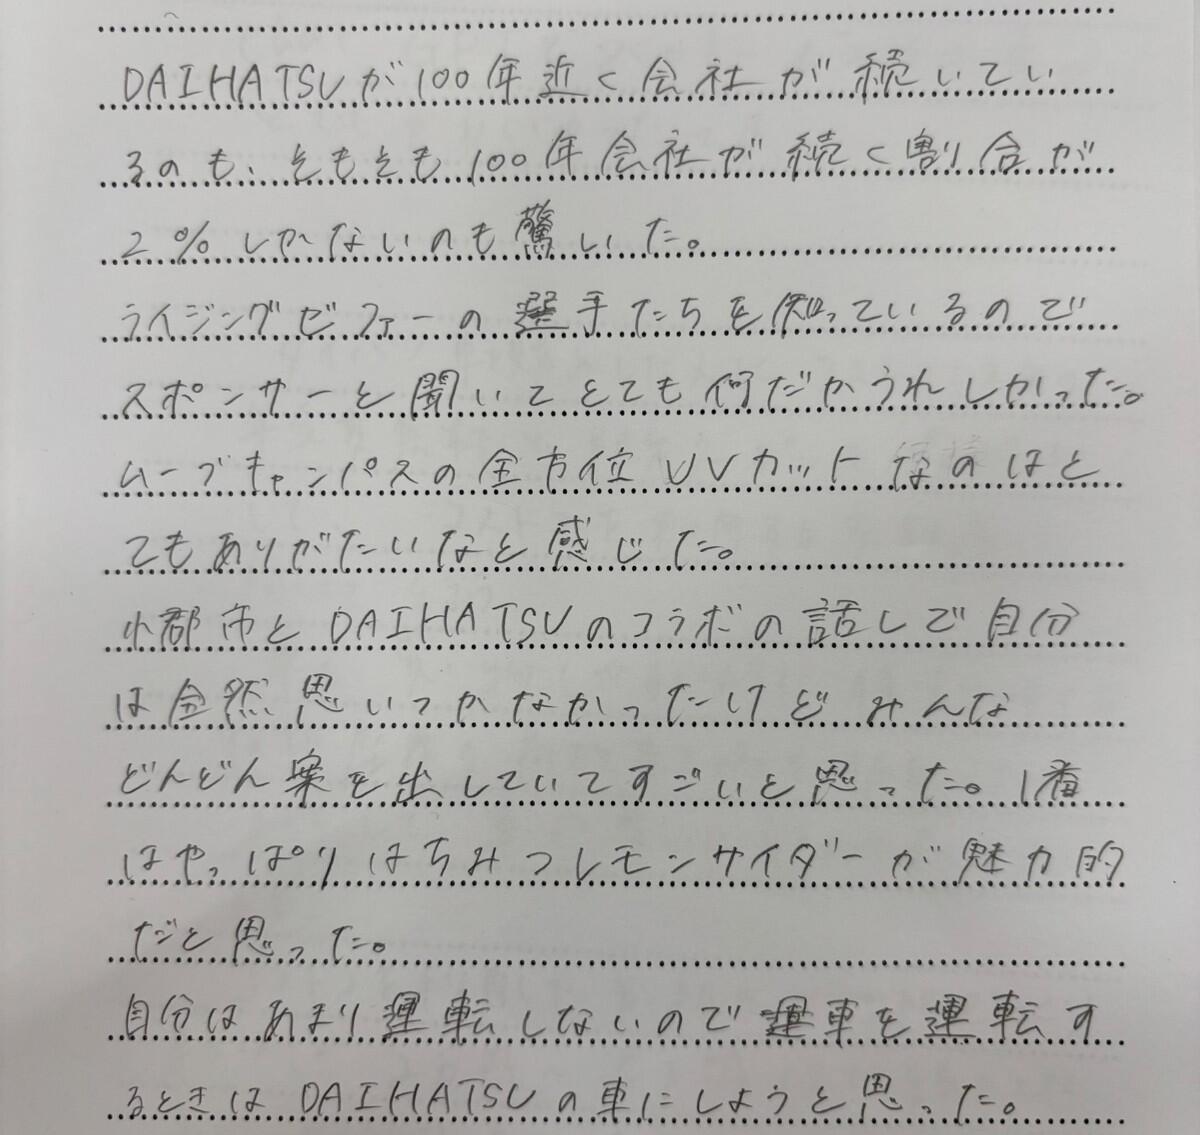 DAIHATSUが100年近く会社が続いてい
るのも、そもそも100年会社が続く割合が
2%しかないのも驚いた。
ライジングゼファーの選手たちを知っているので
スポンサーと聞いてとても何だかうれしかった。
ムーブキャンパスの全方位UVカットなのはと
てもありがたいなと感じた。
小郡市とDAIHATSUのコラボの話しで自分
は全然思いつかなかったけどみんな
どんどん案を出していてすごいと思った。1番
はやっぱりはちみつレモンサイダーが魅力的
だと思った。
自分はあまり運転しないので運車を運転す
るときはDAIHATSUの車にしようと思った。